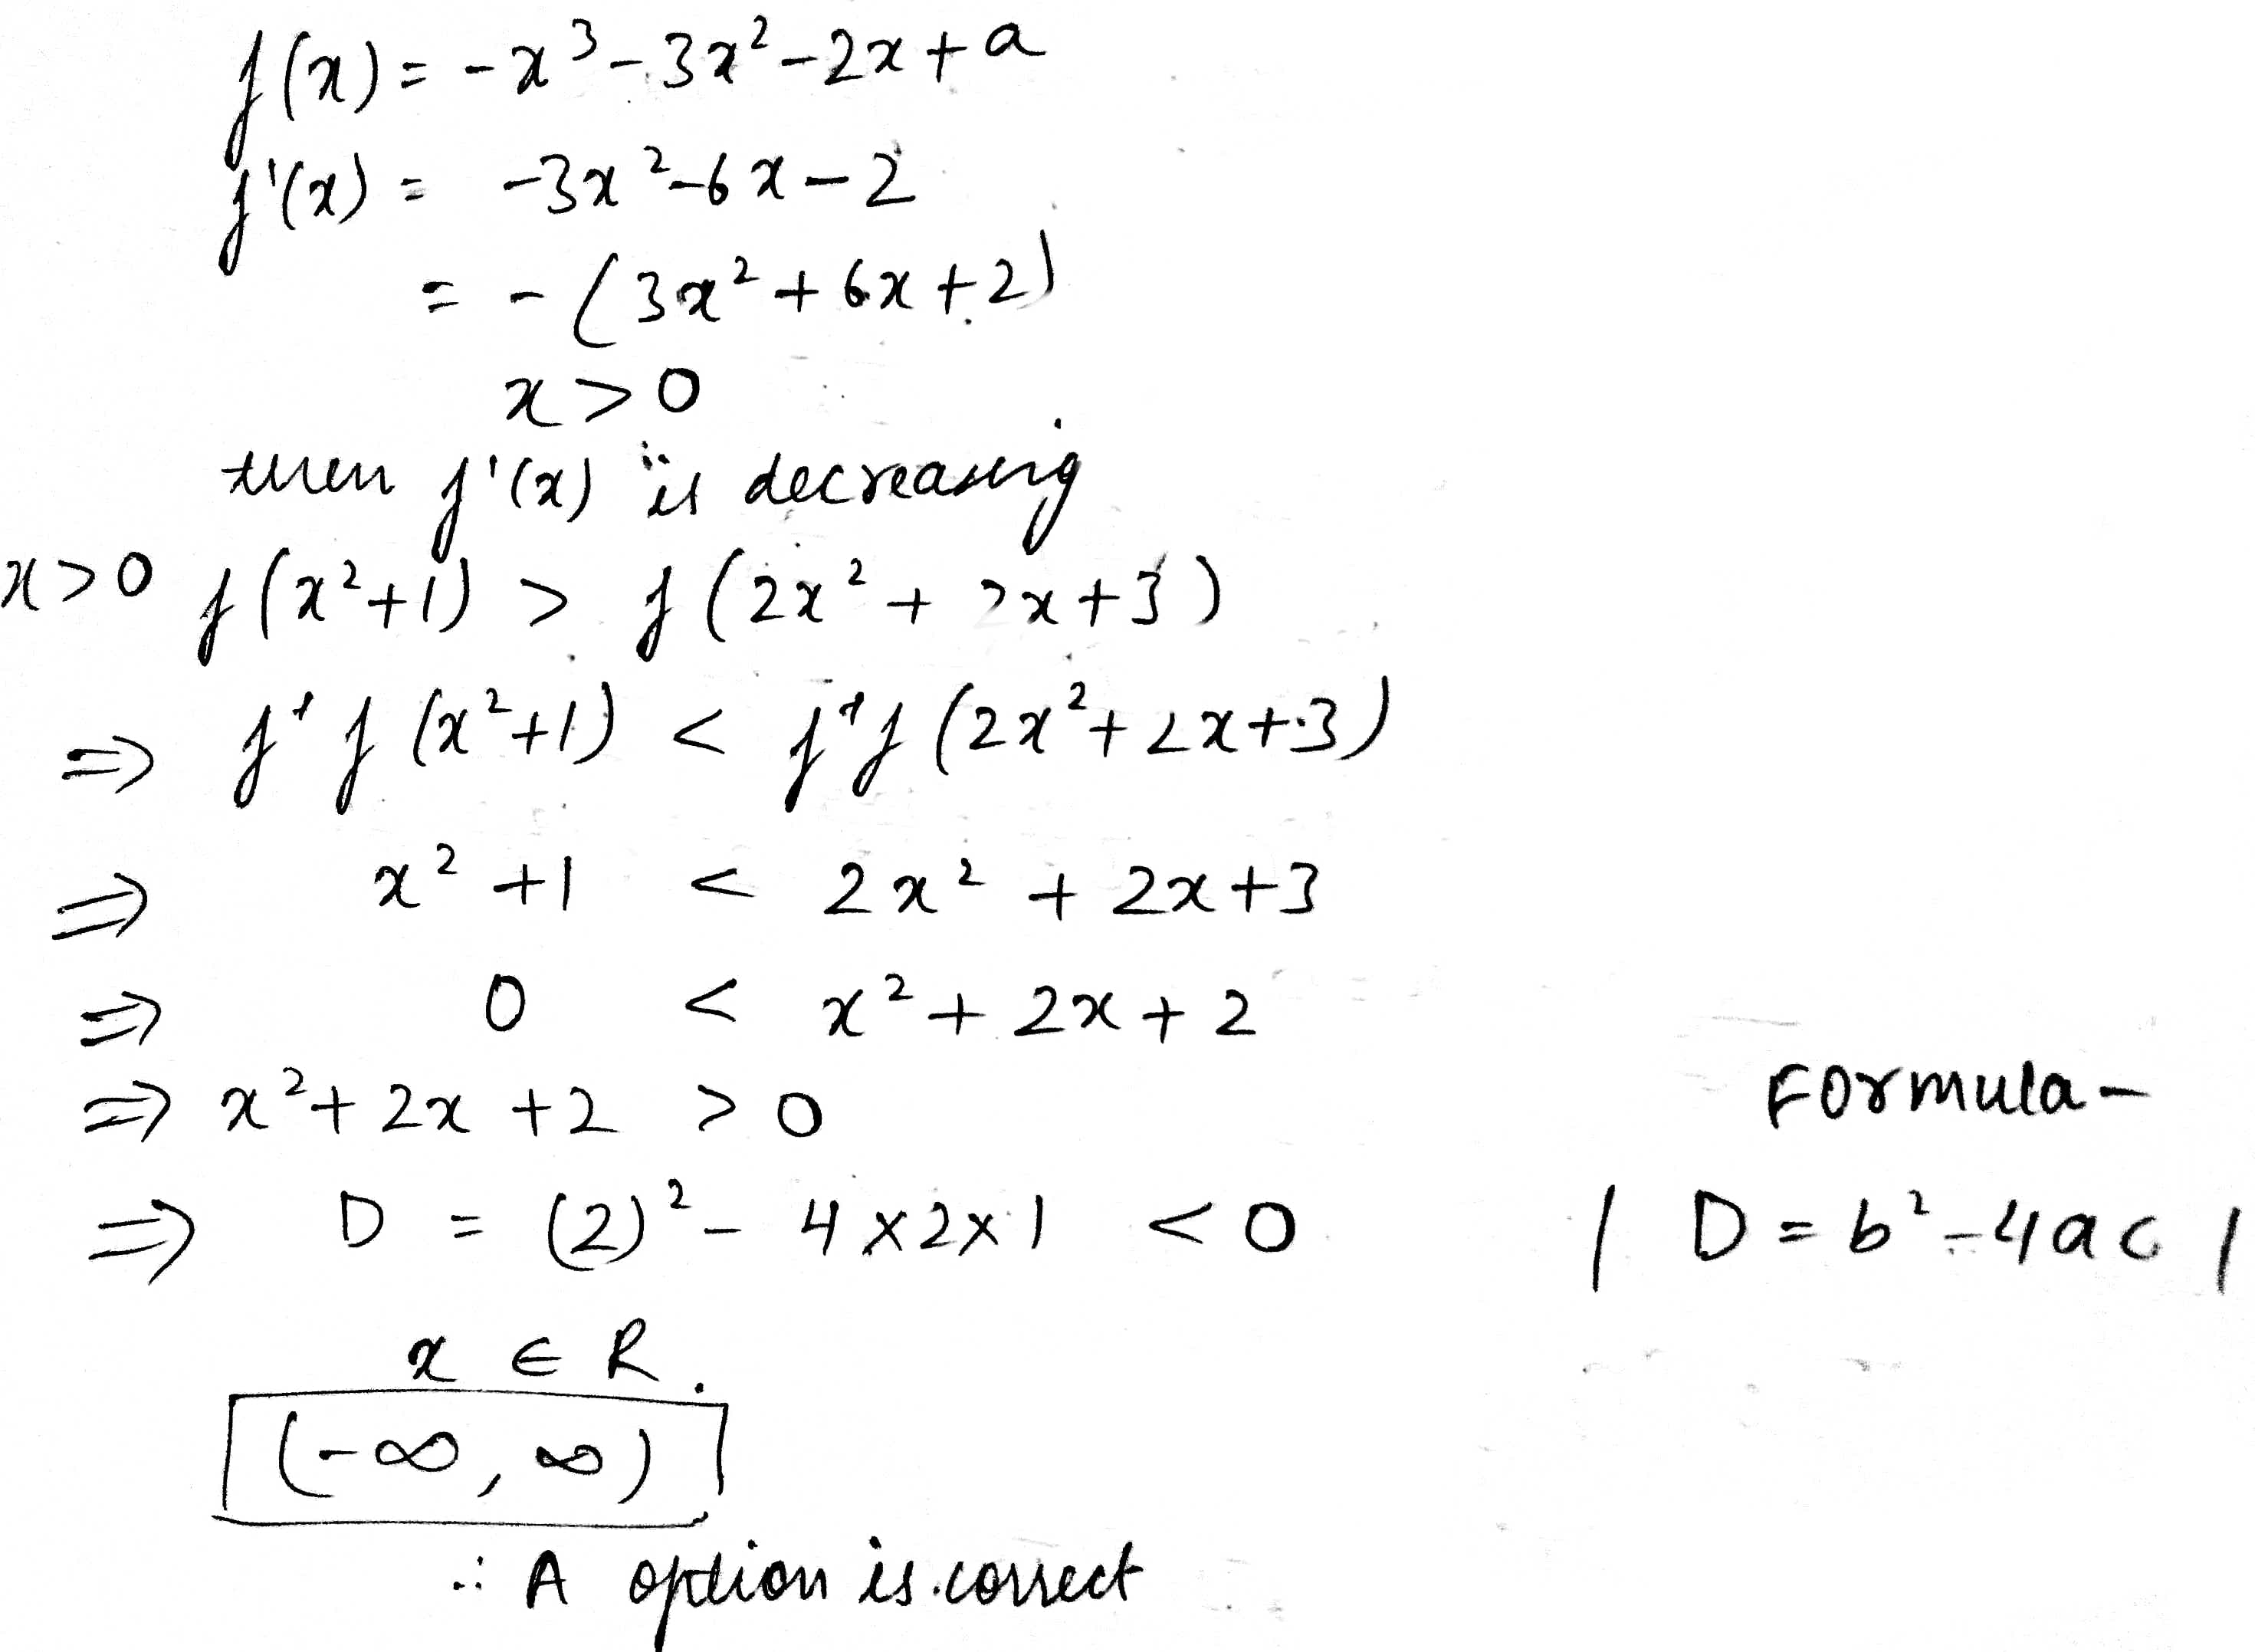 f(x) = -x³-3x²-2x+a
f'(x) = -3x²-6x-2
= -(3x²+6x+2)
x>0
then f'(x) is decreasing
x>0 f(x²+1) > f(2x²+2x+3)
⇒ f⁻¹f(x²+1) < f⁻¹f(2x²+2x+3)
⇒ x²+1 < 2x²+2x+3
⇒ 0 < x²+2x+2
⇒ x²+2x+2 >0
Formula-
⇒ D = (2)²-4×2×1 <0 | D=b²-4ac |
x ∈ R.
(-∞, ∞)
∴ A option is correct